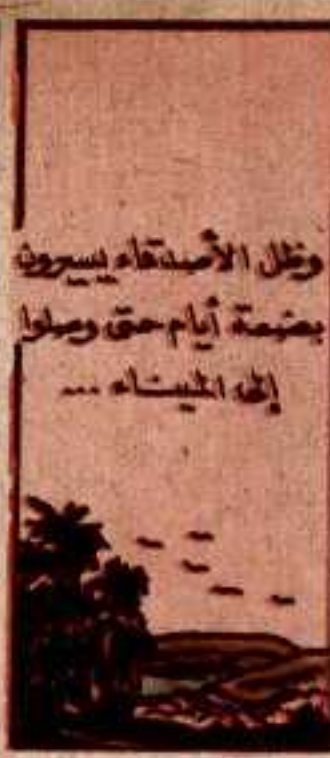 وظل الأصدقاء يسيرون
بضعة أيام حتى وصلوا
إلى الميناء ...